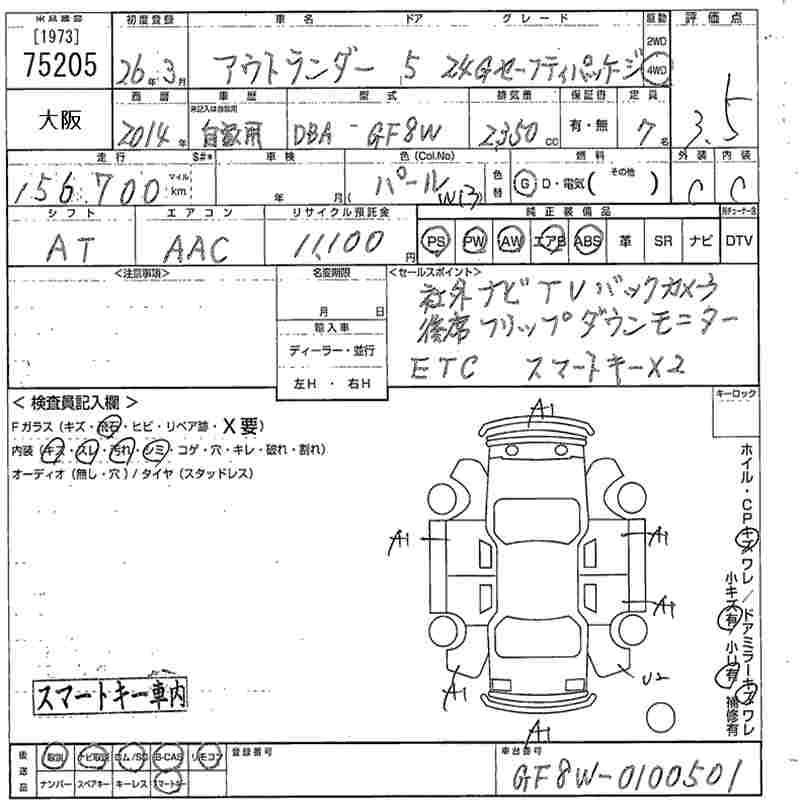 [1973]
75205
初度登録 車名 ドア グレード 駆動 評価点
26年3月 アウトランダー 5 24Gセーフティパッケージ 2WD 4WD 3.5
大阪
西暦 車歴 型式 排気量 保証書 定員
未記入は自家用
2014年 自家用 DBA-GF8W 2350cc 有・無 7名
走行 S#* 車検 色(Col.No) 色替 燃料 外装 内装
156,700 マイル km 年 月( パール W13) G D・電気( その他 ) C C
シフト エアコン リサイクル預託金 純正装備品
AT AAC 11,100円 PS PW AW エアB ABS 革 SR ナビ DTV
<注意事項> 名変期限 <セールスポイント>
月 日
輸入車
ディーラー・並行
左H・右H
社外ナビTVバックカメラ
後席フリップダウンモニター
ETC スマートキーX2
キーロック
<検査員記入欄>
Fガラス(キズ・飛石・ヒビ・リペア跡・X要)
内装(キズ・スレ・汚れ・シミ・コゲ・穴・キレ・破れ・割れ)
オーディオ(無し・穴)/タイヤ(スタッドレス)
A1
A1
A1
A1
A1
U2
A1
ホイル・CPキズワレ/ドアミラーキズワレ
小キズ有/小U有/補修有
スマートキー車内
後送品 取説 ナビ取説 ロム/SD B-CAS リモコン 登録番号 車台番号
ナンバー スペアキー キーレス スマートキー GF8W-0100501